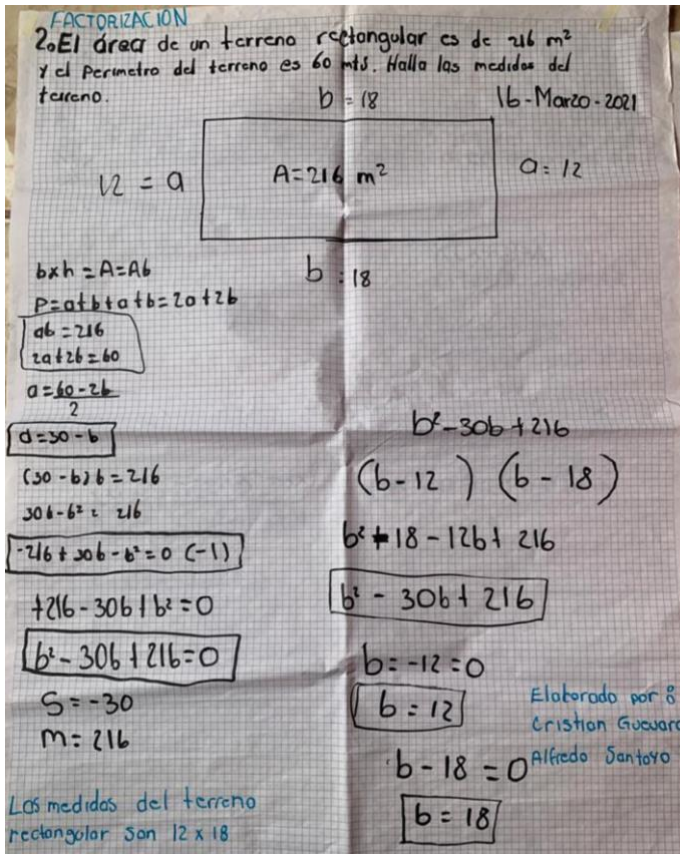 FACTORIZACION
2.El área de un terreno rectongular es de 216 m²
y el Perimetro del terreno es 60 mts. Halla las medidas del
terreno.
16-Marzo-2021
b = 18
12 = a
A=216 m²
a= 12
b = 18
bxh = A=Ab
P=a+b+a+b=2a+2b
ab = 216
2a+2b=60
a=60-2b
2
a=30-b
(30-b)b=216
30b-b²= 216
-216+30b-b²=0 (-1)
+216-30b+b²=0
b²-30b+216=0
S=-30
m=216
Las medidas del terreno
rectangular son 12 x 18
b²-30b+216
(b-12) (b-18)
b²-18-12b+216
b²-30b+216
b=-12=0
b=12
b-18=0
b=18
Elaborado por:
Cristian Guevara
Alfredo Santoyo